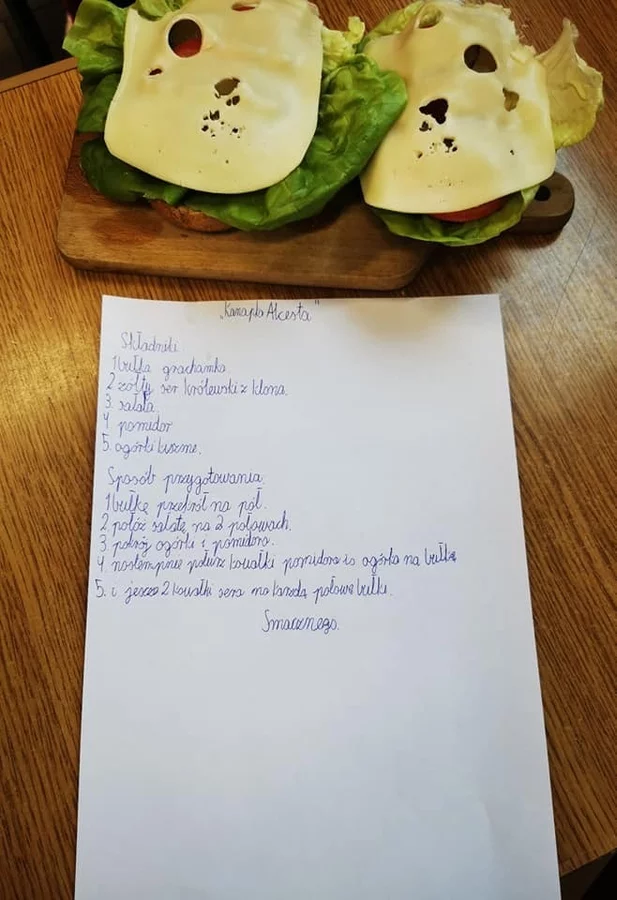 „Kanapka Alcesta"
Składniki
1 bułka grachamka
2 żółty ser królewski z klona.
3. sałata
4 pomidor
5. ogórki kiszone.
Sposób przygotowania.
1 bułkę przekrój na pół.
2. połóż sałatę na 2 połowach.
3. pokrój ogórki i pomidora.
4. nostempnie połuż kawałki pomidora is ogórka na bułkę
5. i jeszcze 2 kawałki sera na każdą połowę bułki.
Smacznego.